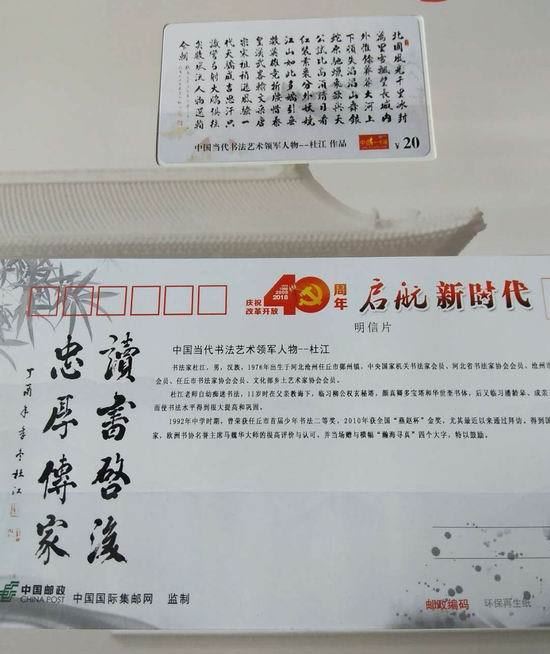 北國風光千里冰封
萬里雪飄望長城内
外惟餘莽莽大河上
下頓失滔滔山舞銀
蛇原馳蠟象欲與天
公試比高須晴日看
紅裝素裹分外妖嬈
江山如此多嬌引無
數英雄競折腰惜秦
皇漢武略輸文采唐
宗宋祖稍遜風騷一
代天驕成吉思汗只
識彎弓射大雕俱往
矣數風流人物還看
今朝
中国当代书法艺术领军人物--杜江 作品
¥20
庆祝
改革开放
40
2018
周年
启航 新时代
明信片
中国当代书法艺术领军人物--杜江
书法家杜江，男，汉族，1976年出生于河北沧州任丘市鄚州镇，中央国家机关书法家会员、河北省书法家协会会员、沧州市
会员、任丘市书法家协会会员、文化部乡土艺术家协会会员。
杜江老师自幼酷迷书法，11岁时在父亲教诲下，临习柳公权玄秘塔，颜真卿多宝塔和华世奎书体，后又临习潘龄皋、成亲
而使书法水平得到很大提高和巩固。
1992年中学时期，曾荣获任丘市首届少年书法二等奖，2010年获全国“燕赵杯”金奖，尤其最近以来通过拜访，得到国
家，欧洲书协名誉主席马魏华大师的提高评价与认可，并当场赠与横幅“瀚海寻真”四个大字，特以鼓励。
讀書啓後
忠厚傳家
丁酉年 杜江
中国邮政
CHINA POST
中国国际集邮网 监制
邮政编码
环保再生纸